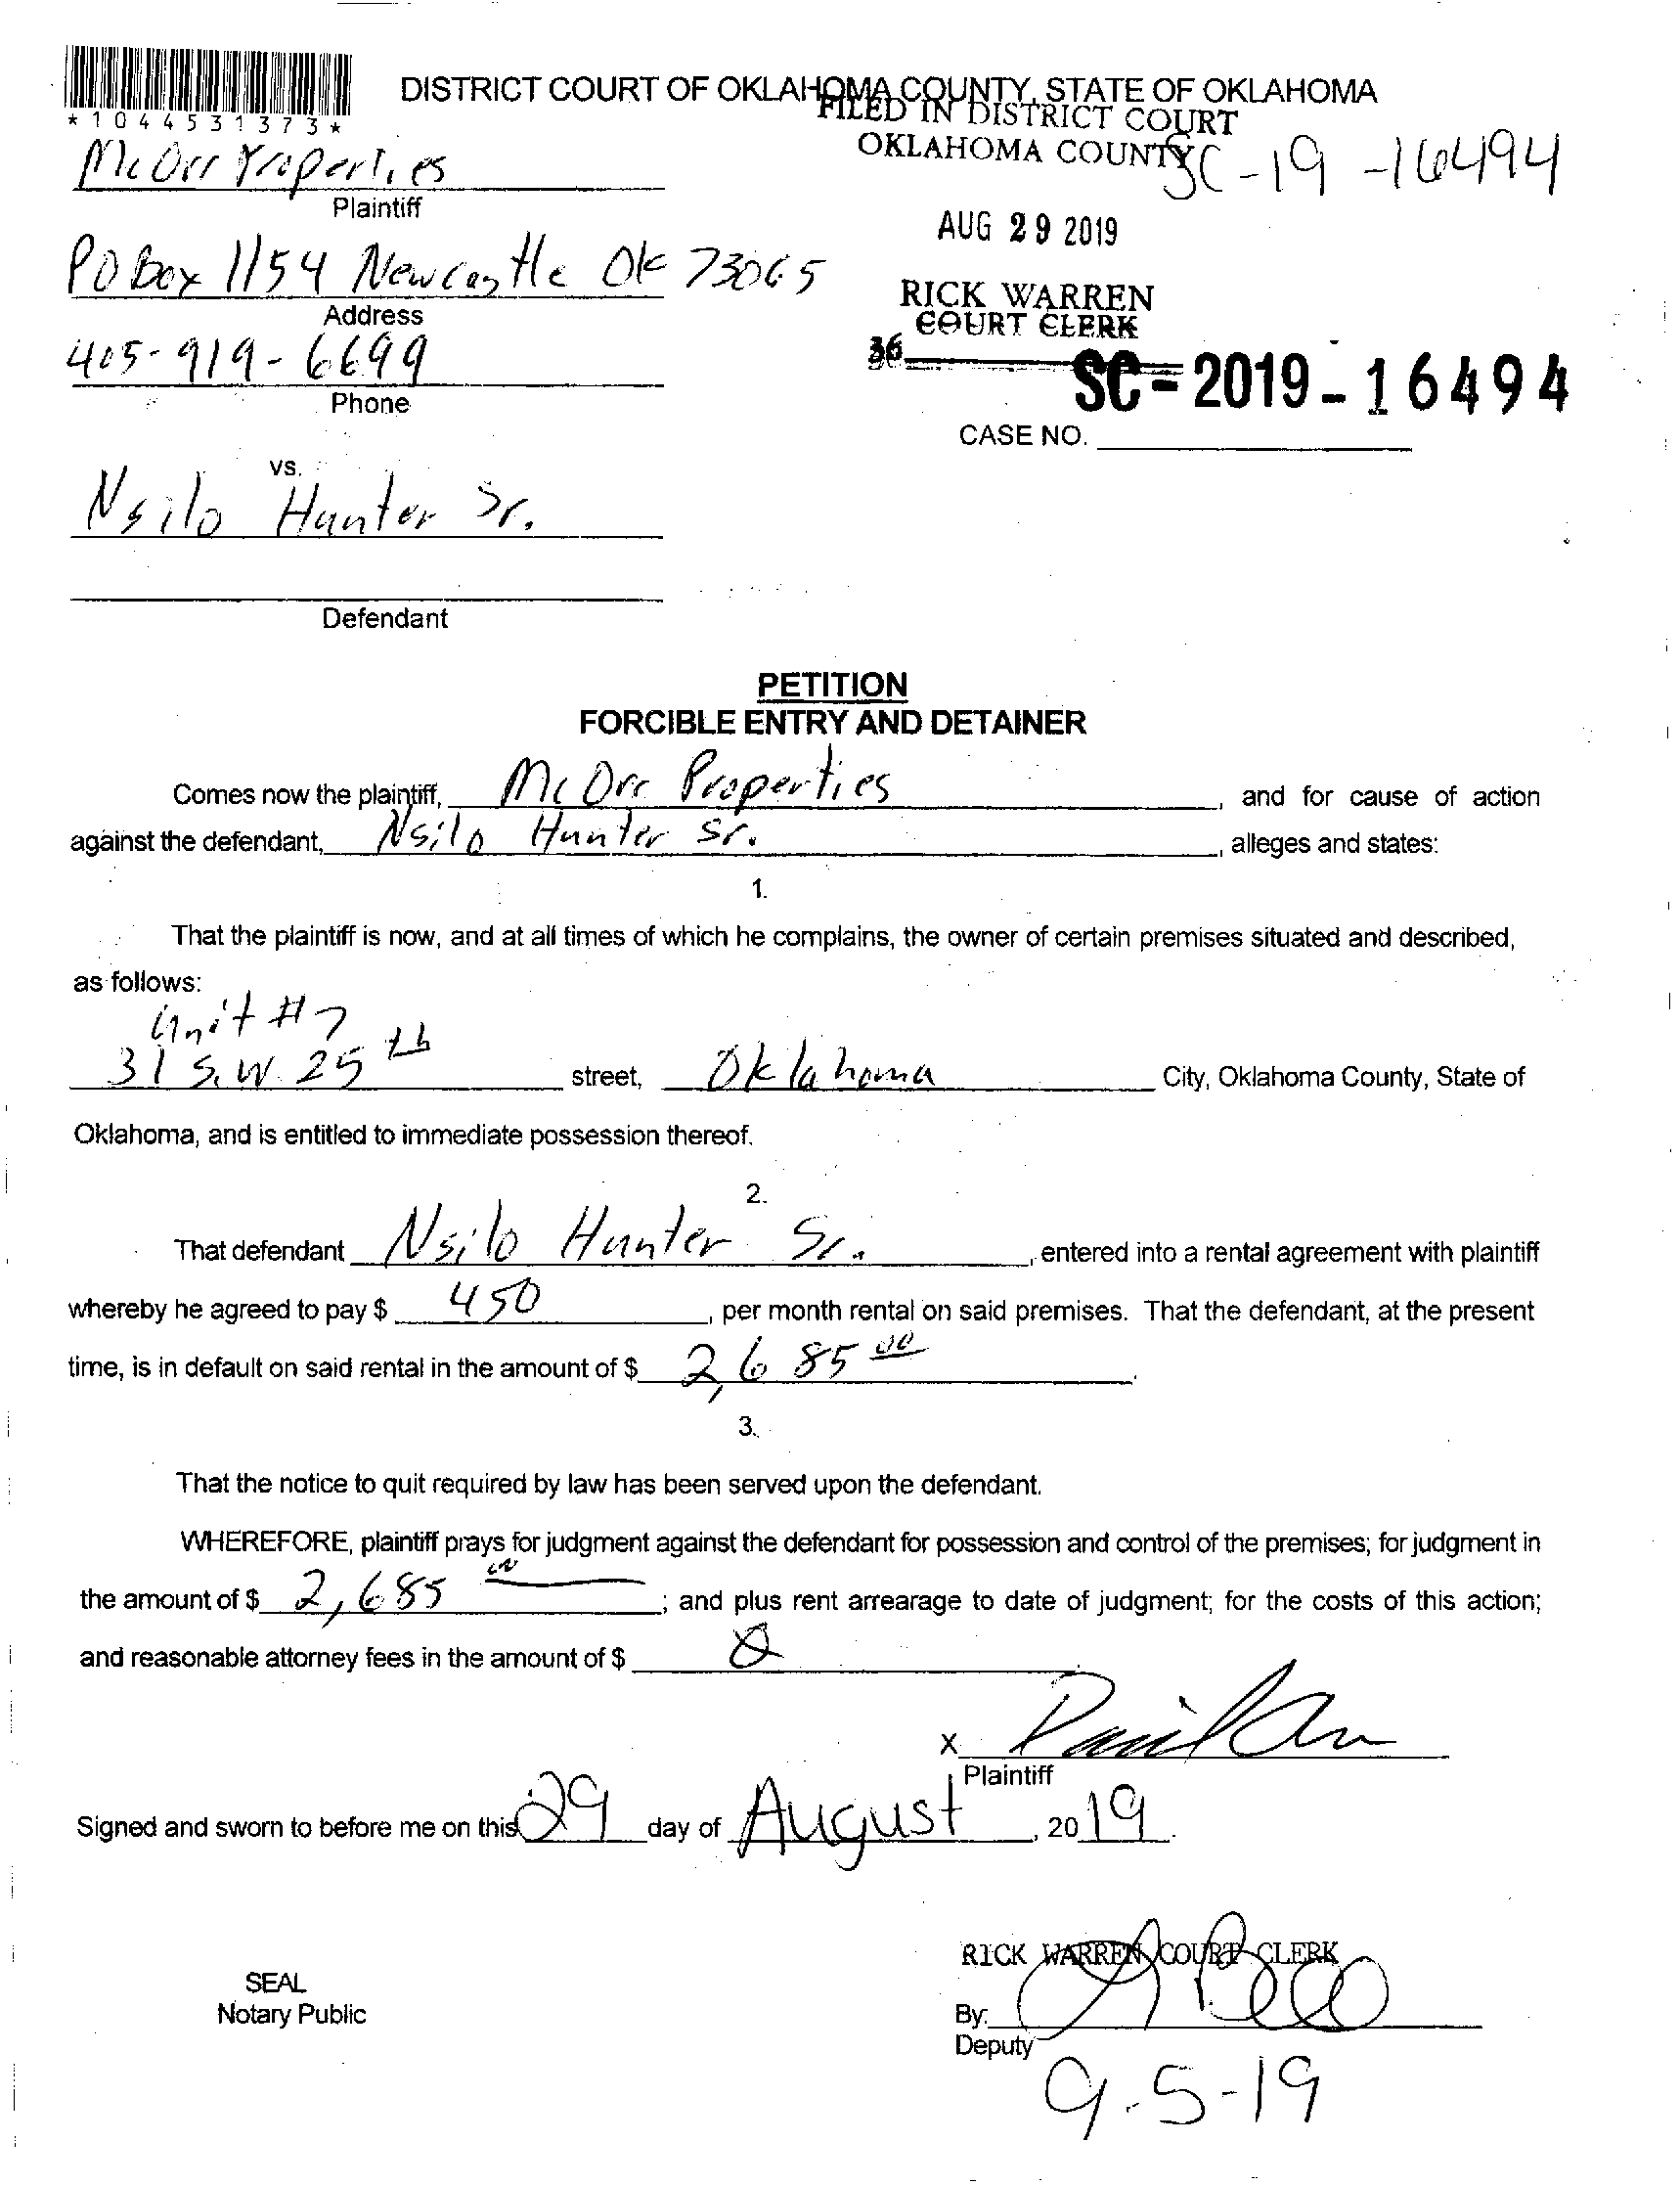 DISTRICT COURT OF OKLAHOMA COUNTY, STATE OF OKLAHOMA
*1044531373*
FILED IN DISTRICT COURT
OKLAHOMA COUNTY
SC-19-16494
McOrr Properties
Plaintiff
AUG 29 2019
PO Box 1154 Newcastle OK 73065
Address
RICK WARREN
COURT CLERK
405-919-6699
36
Phone
SC-2019-16494
CASE NO.
vs.
Nsilo Hunter Sr.
Defendant
PETITION
FORCIBLE ENTRY AND DETAINER
Comes now the plaintiff, McOrr Properties, and for cause of action
against the defendant, Nsilo Hunter Sr., alleges and states:
1.
That the plaintiff is now, and at all times of which he complains, the owner of certain premises situated and described,
as follows:
Unit #7
31 S.W. 25th street, Oklahoma City, Oklahoma County, State of
Oklahoma, and is entitled to immediate possession thereof.
2.
That defendant Nsilo Hunter Sr., entered into a rental agreement with plaintiff
whereby he agreed to pay $ 450, per month rental on said premises. That the defendant, at the present
time, is in default on said rental in the amount of $ 2,685 00.
3.
That the notice to quit required by law has been served upon the defendant.
WHEREFORE, plaintiff prays for judgment against the defendant for possession and control of the premises; for judgment in
the amount of $ 2,685 00; and plus rent arrearage to date of judgment; for the costs of this action;
and reasonable attorney fees in the amount of $
X
Plaintiff
Signed and sworn to before me on this 29 day of August, 2019.
RICK WARREN COURT CLERK
SEAL
Notary Public
By:
Deputy
9-5-19